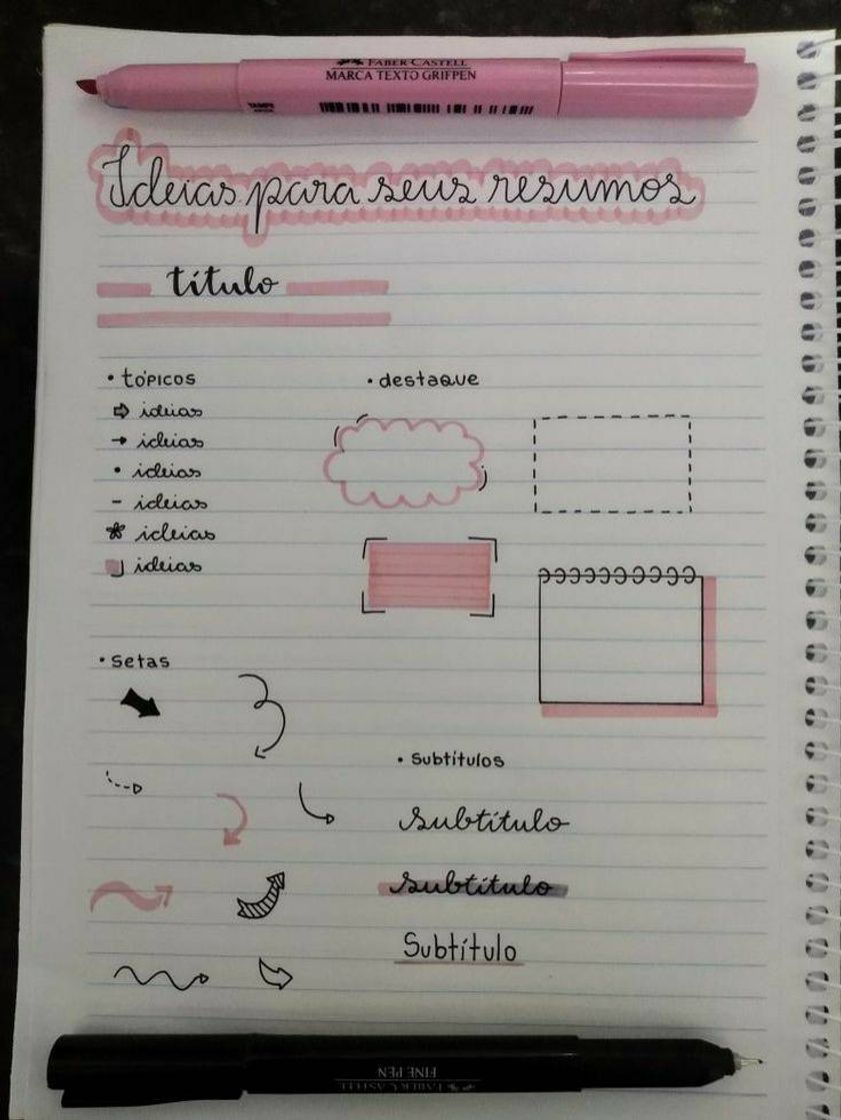 FABER-CASTELL
MARCA TEXTO GRIFPEN
Ideias para seus resumos
título
• tópicos
⇨ ideias
→ ideias
• ideias
- ideias
* ideias
ideias
• destaque
• setas
• Subtítulos
subtítulo
subtítulo
Subtítulo
FABER-CASTELL
FINE PEN